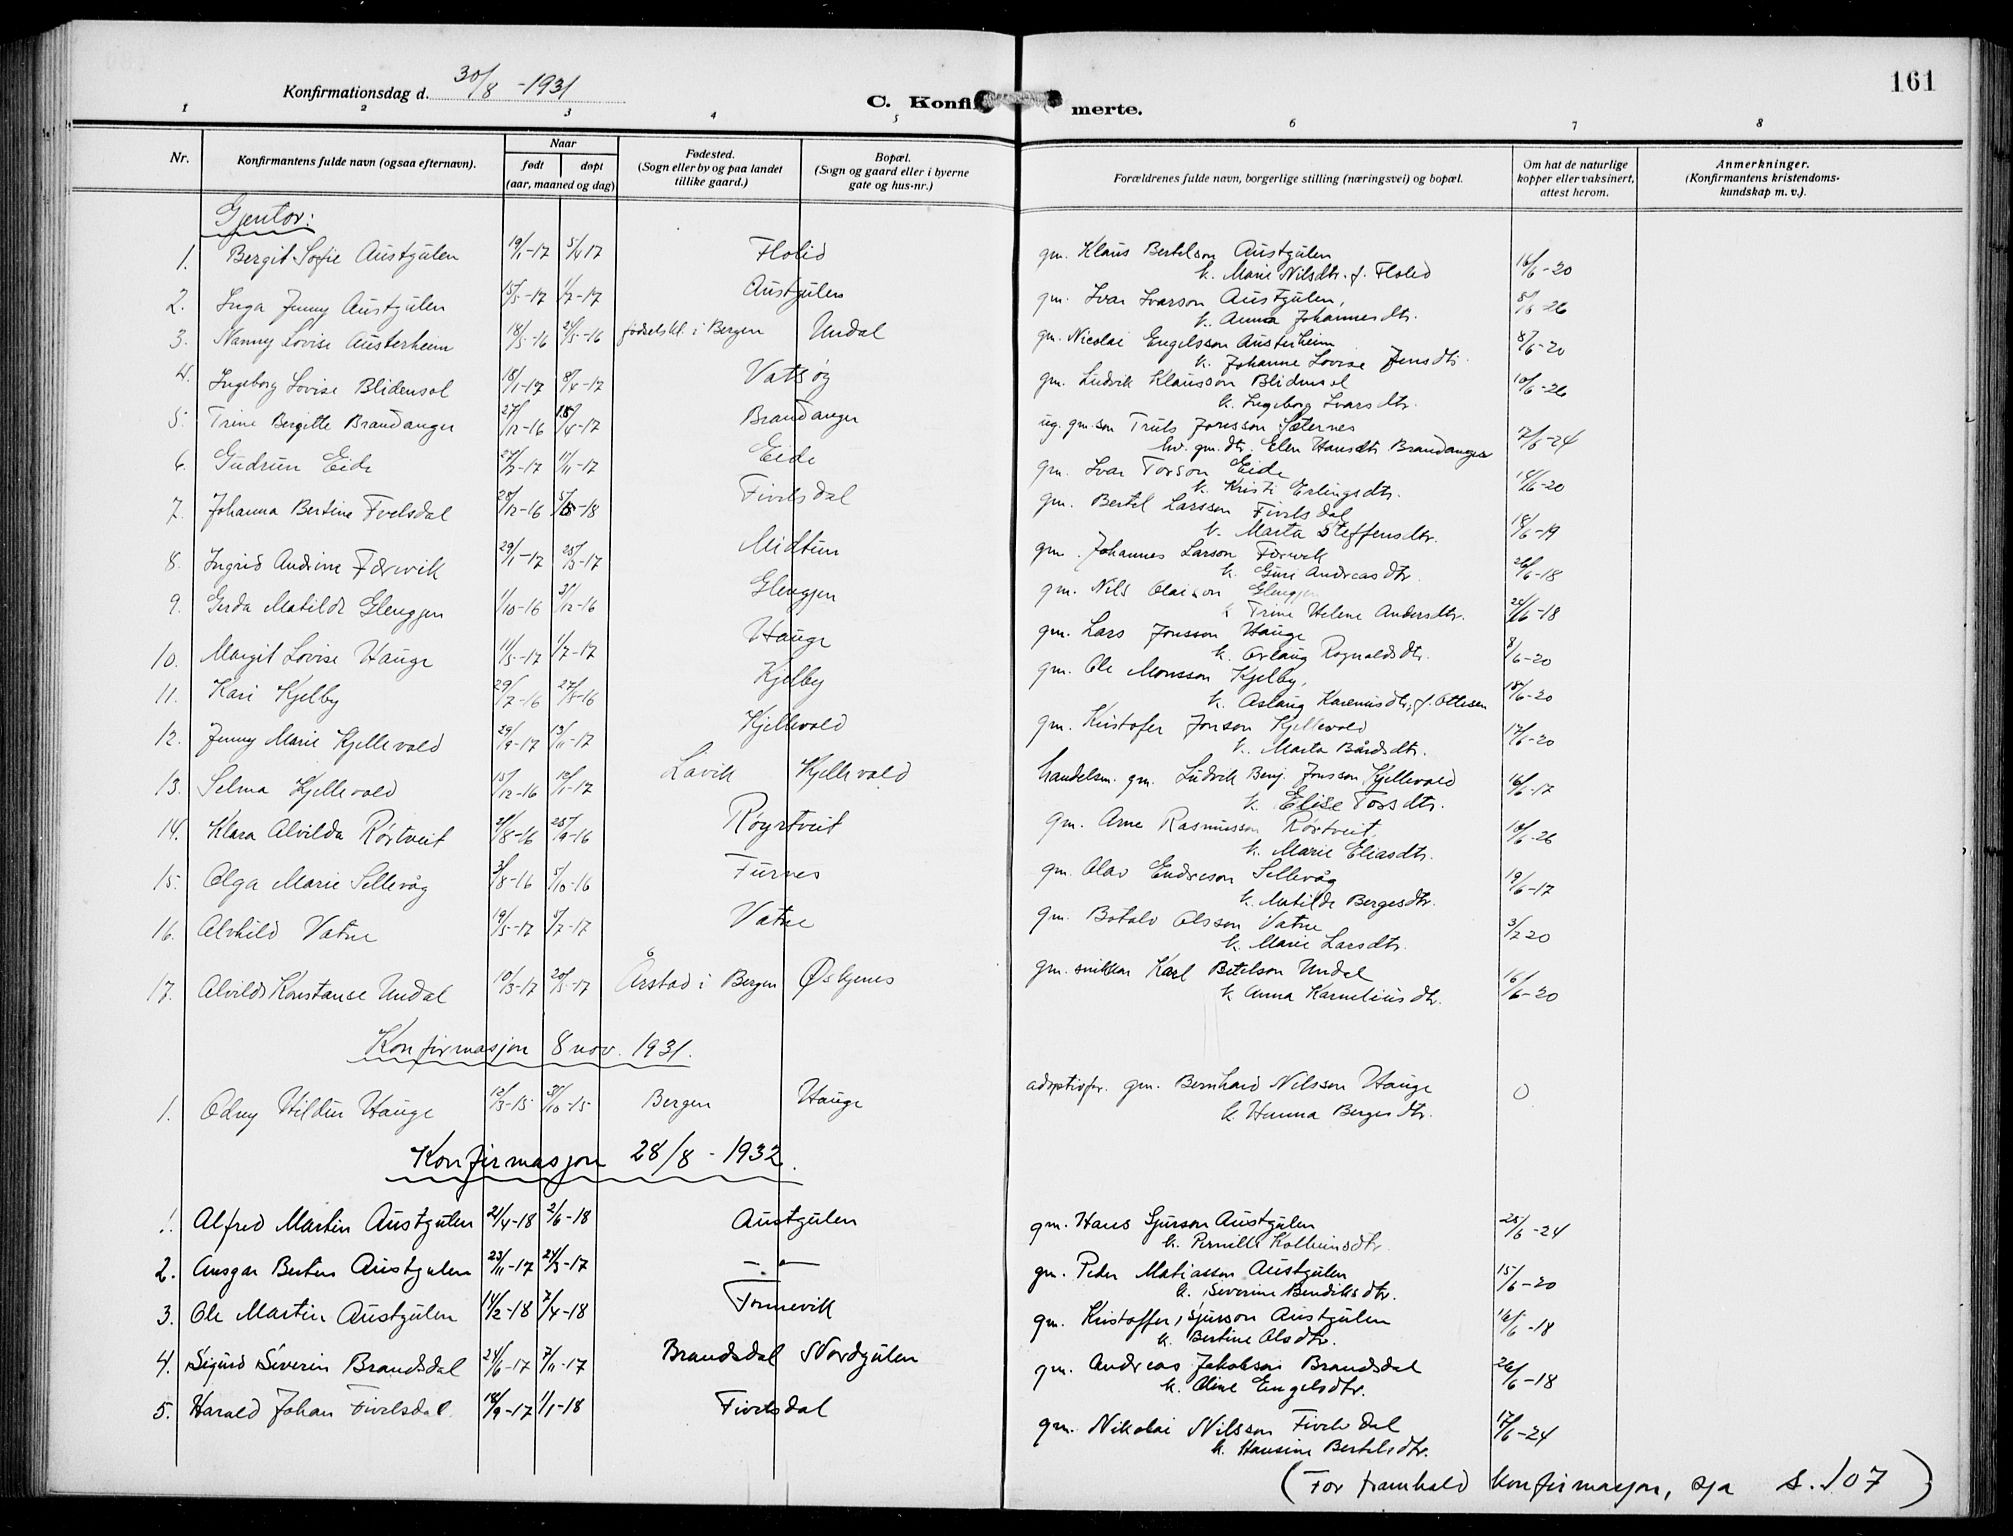 161
Konfirmationsdag d. 30/8 - 1931
C. Konfirmerte.
1 2 3 4 5 6 7 8
Nr.
Konfirmantens fulde navn (ogsaa efternavn).
Naar
født døpt
(aar, maaned og dag)
Fødested.
(Sogn eller by og paa landet
tillike gaard.)
Bopæl.
(Sogn og gaard eller i byerne
gate og hus-nr.)
Forældrenes fulde navn, borgerlige stilling (næringsvei) og bopæl.
Om hat de naturlige
kopper eller vaksinert,
attest herom.
Anmerkninger.
(Konfirmantens kristendoms-
kundskap m. v.).
Gjentor:
1. Bergit Sofie Austgulen 19/1-17 5/4 17 Flolid gm. Klaus Bertelson Austgulen 16/6-20
k. Marie Nilsdtr. f. Flolid
2. Inga Jenny Austgulen 15/5-17 1/7-17 Austgulen gm. Ivar Ivarson Austgulen, 8/6-26
k. Anna Johannesdtr.
3. Nanny Lovise Austerheim 18/5-16 21/5-16 fødselskl. i Bergen Undal gm. Nicolai Engelsson Austerheim 8/6-20
k. Johanne Lovise Jensdtr.
4. Ingeborg Lovise Blidensol 18/1-17 8/4-17 Vatsøy gm. Ludvik Klausson Blidensol 10/6-26
k. Ingeborg Ivarsdtr.
5. Trine Bergitte Brandanger 27/12-16 15/4-17 Brandanger ug. gm. son Truls Jonsson Sæternes 17/6-24
hv. gm. dtr. Elen Hansdtr Brandanger
6. Gudrun Eide 27/7-17 11/11-17 Eide gm. Ivar Torson Eide 14/6-20
k. Kristi Erlingsdtr.
7. Johanna Bertine Fvelsdal 28/12-16 5/5-18 Fivelsdal gm. Bertel Larsson Fivelsdal 18/6-19
k. Marta Steffensdtr.
8. Ingrid Andrine Færevik 29/1-17 25/3-17 Midtun gm. Johannes Larson Færevik 26/6-18
k. Guri Andreasdtr.
9. Gerda Matilde Glengjen 1/10-16 31/12-16 Glengjen gm. Nils Olaison Glengjen 26/6-18
k Trine Helene Andersdtr.
10. Margit Lovise Hauge 11/5-17 1/7-17 Hauge gm. Lars Jonsson Hauge 8/6-20
k. Orlaug Rognaldsdtr.
11. Kari Kjelby 29/7-16 27/8-16 Kjelby gm. Ole Monsson Kjelby, 18/6-20
k. Aslaug Kareniusdtr, f. Ottesen
12. Jenny Marie Kjellevold 29/9-17 13/11-17 Kjellevold gm. Kristofer Jonson Kjellevold 17/6-20
k. Marta Bårdsdtr.
13. Selma Kjellevold 15/12-16 12/1-17 Lavik Kjellevold handelsm. gm. Ludvik Benj. Jonsson Kjellevold 16/6-17
k. Elise Torsdtr.
14. Klara Alvilda Rørtveit 21/8-16 25/9-16 Røyrtveit gm. Arne Rasmusson Rørtveit, 10/6-26
k. Marie Eliasdtr.
15. Olga Marie Sellevåg 3/8-16 5/10-16 Furnes gm. Olav Endreson Sellevåg 19/6-17
k. Matilde Bergesdtr.
16. Alvhild Vatne 19/5-17 1/7-17 Vatne gm. Botolv Olsson Vatne 3/7 20
k. Marie Larsdtr.
17. Alvilde Konstanse Undal 10/3-17 20/5-17 Årstad i Bergen Østgenes gm. snikkar Karl Betelson Undal 16/6-20
k Anna Karneliusdtr.
Konfirmasjon 8 nov. 1931.
1. Odny Hildur Hauge 12/3-15 31/10-15 Bergen Hauge adoptivfor. gm. Bernhard Nilsson Hauge 0
k. Hanna Bergesdtr.
Konfirmasjon 28/8 - 1932.
1. Alfred Martin Austgulen 21/4-18 2/6-18 Austgulen gm. Hans Sjurson Austgulen 25/6-24
k. Pernille Kolbeinsdtr.
2. Ansgar Bertin Austgulen 23/11-17 24/3-17 —„— gm. Peder Matiasson Austgulen 15/6-20
k. Severine Bendiksdtr.
3. Ole Martin Austgulen 14/2-18 7/4-18 Tonnevik gm. Kristoffer Sjurson Austgulen 16/6-18
k. Bertine Olsdtr.
4. Sigurd Severin Brandsdal 24/6-17 7/11-17 Brandsdal Nordgulen gm. Andreas Jakobson Brandsdal 26/6-18
k. Oline Engelsdtr.
5. Harald Johan Fivelsdal. 18/9-17 1/1-18 Fivelsdal gm. Nikolai Nilsson Fivelsdal 17/6-24
k. Hansine Bertelsdtr.
(For framhald konfirmasjon, sja s. 107)